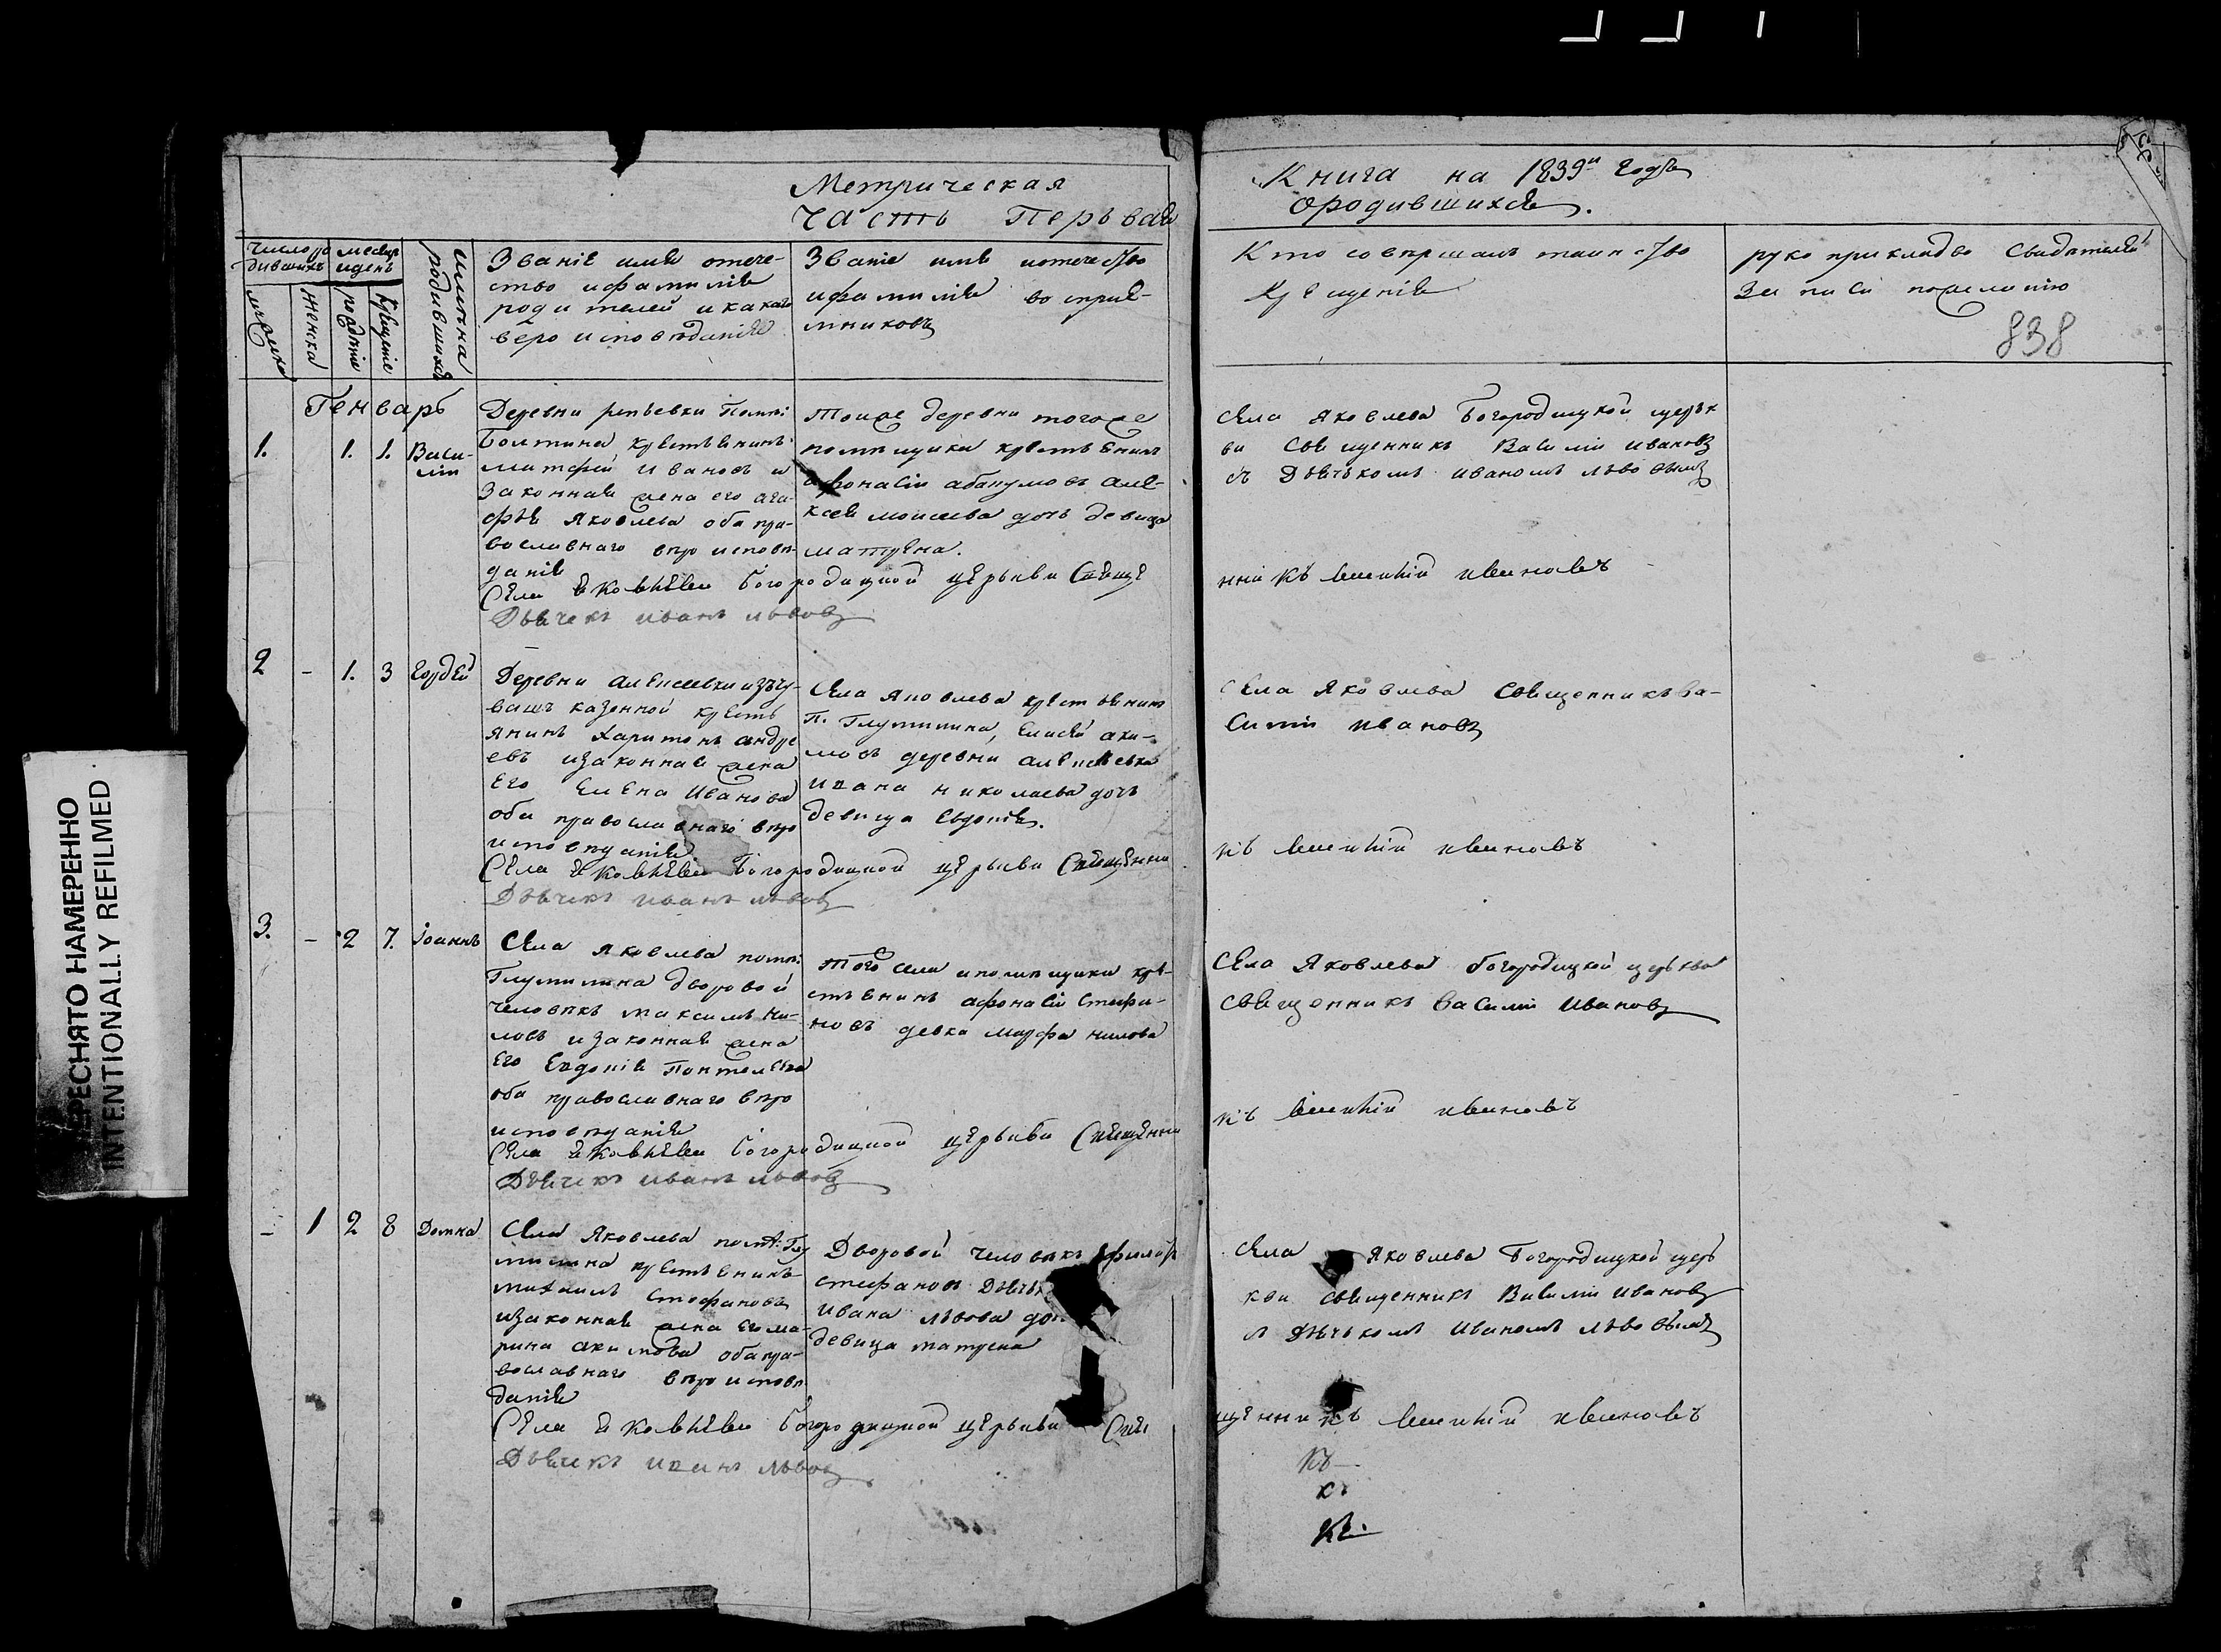 Метрическая
Часть Перьвая
Книга на 1839й годъ
ородившихся.
Званіе имя отече-
ство ифамилія
родителей и какаго
веро исповеданія
Званіе имя иотечество
ифамилія воспріе-
мниковъ
Кто совершалъ таинство
Крещенія
руко прикладво Свидателей
Записи пожеланію
838
Генварь
1.
1. 1.
Васи-
лій
Деревни репьевки Помѣ:
Болтина крестьянинъ
матфей Ивановъ и
Законная жена его ага-
фья Яковлева оба пра-
вославнаго веро исповѣ-
данія
Тойже деревни тогоже
помѣщика крестьянинъ
афонасій абакумовъ але-
ксея моисеева дочь девица
матрена.
села Яковлева Богородицкой церьк
ви Священникъ Василій Ивановъ
съ Дьячькомъ иваномъ львовымъ
Села Яковлева богородицкой церькви Свяще
нникъ василий ивановъ
Дьячекъ иванъ львовъ
2 - 1. 3 Гордей
Деревни алексеевки изъчу-
вашъ казенной кресть
янинъ Харитонъ андре
евъ изаконная жена
Его Елена Иванова
оба православнаго веро
исповеданія
Села Яковлева крестьянинъ
П. Глутилина, Елисей аки-
мовъ деревни алексеевки
Ивана николаева дочь
девица Евдокія.
села Яковлева Священникъ ва-
силій Ивановъ
Села Яковлева Богородицкой церькви Священни
къ василий ивановъ
Дьячекъ иванъ львовъ
3. - 2 7. Іоаннъ
Села Яковлева помѣ:
Глутилина дворовой
человѣкъ максимъ ни-
ловъ изаконная жена
Его Евдокія Пантелеева
оба православнаго веро
исповеданія
Того села ипомѣщика кре-
стьянинъ афонасій Стефа-
новъ девка марфа нилова
Села Яковлева богородицкой церькви
священникъ Василій Ивановъ
Села Яковлева богородицкой церькви Священни
къ василий ивановъ
Дьячекъ иванъ львовъ
- 1 2 8 Домна
Села Яковлева помѣ: Глу
тилина крестьянинъ
михаилъ Стефановъ
изаконная жена Его ма-
рина акимова оба пра-
вославнаго веро исповѣ
данія
Дворовой человѣкъ
стефановъ Дьячьк
Ивана львова доч
девица матрена
села Яковлева Богородицкой церь
кви священникъ Василій Ивановъ
съ Дьячькомъ Иваномъ львовымъ
Села Яковлева богородицкой церькви Свя
щенникъ василий ивановъ
Дьячекъ иванъ львовъ
къ
къ
ПЕРЕСНЯТО НАМЕРЕННО
INTENTIONALLY REFILMED